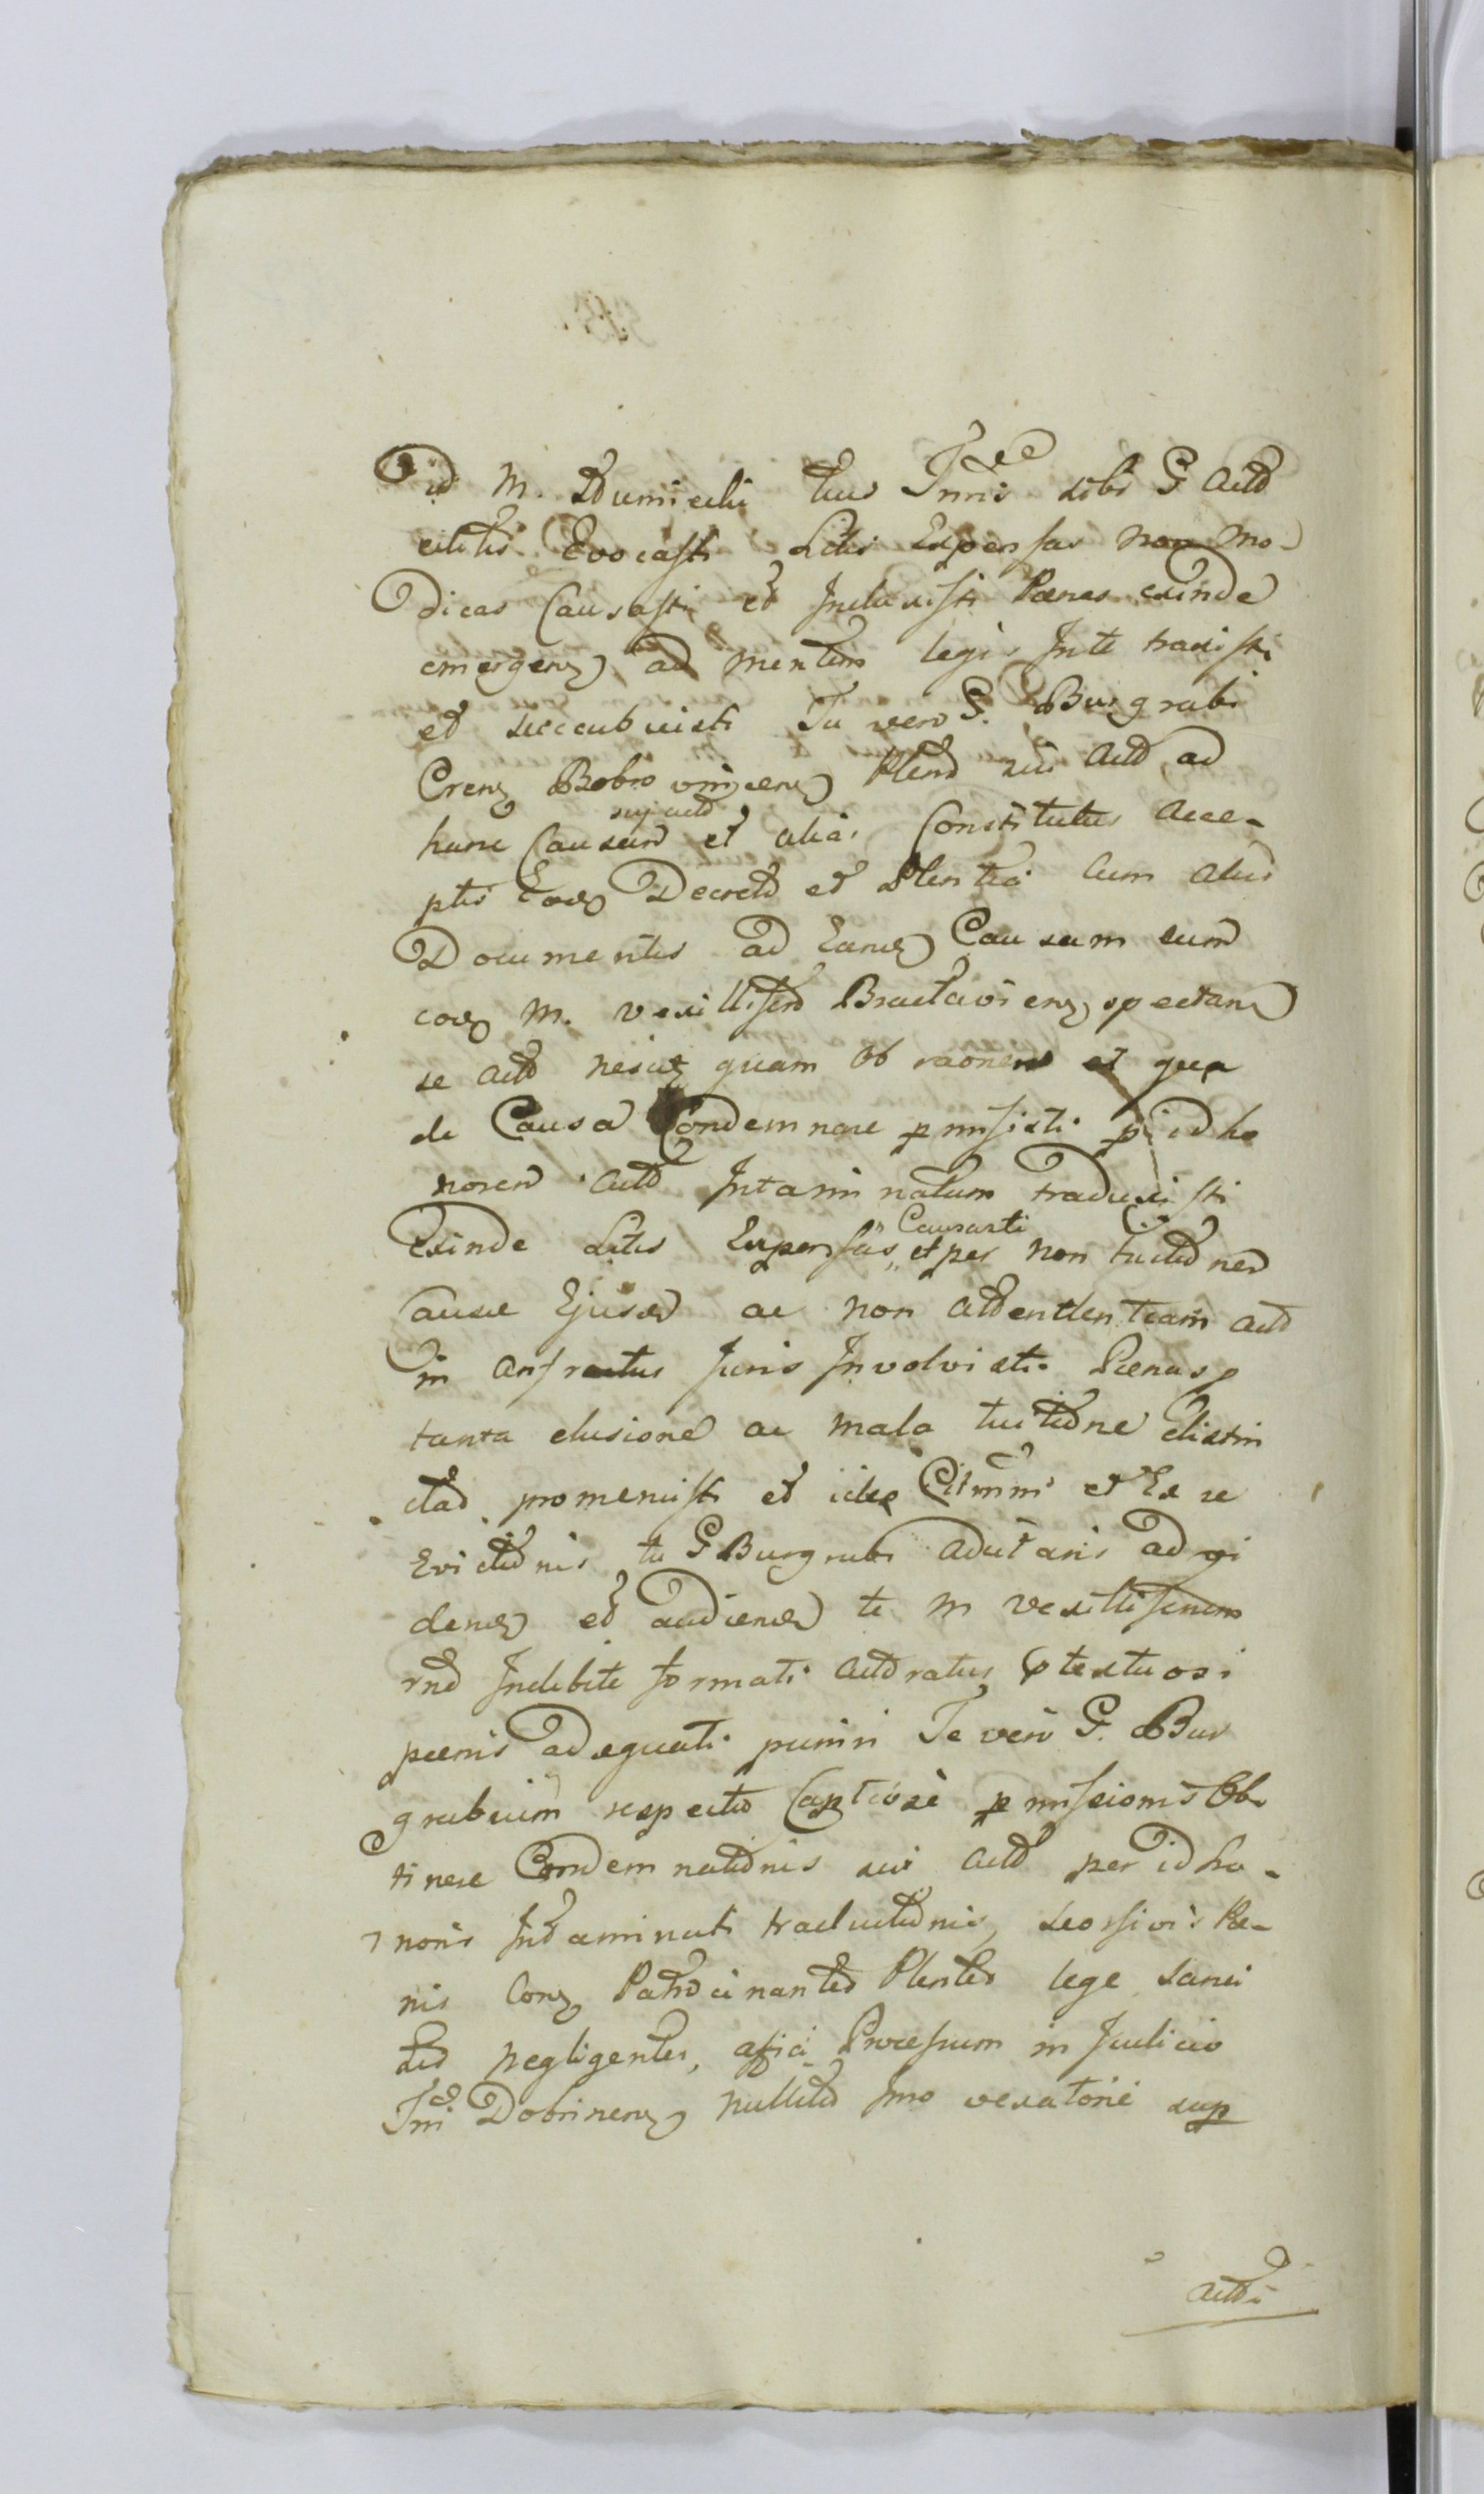 id M. Dumicilii tuus Inris sibi G Actd
citatis Evocasti Litis Expensas non mo-
dicas Causasti et Incluxisti Pænas exinde
emergenz ad mentem legis Inte traxisti
et succubuisti Tu vero G. Burgrabi
Crenz Bobrownicenz Plend sui Actd ad
hanc Causam suj actd et alias Constitutus Acce-
ptis Eorz Decretd et Plentia Cum aliis
Documentis ad Eandz Causam cum
corz M. Vexilliferd Braclaviens spectand
se Actd nescitz quam Ob raonem et qua
de Causa Condemnare pmisisti p id ho
norem Actd Intaminatum traduxisti
Exinde Litis Expensas Causasti et per non tuitdnem
Causæ Ejusd ac non attendentiam Actd
in anfractus Juris Involvisti Pænas p
tanta elusione ac mala tuitdne distin
ctad promeruisti et ideo Citmmi et Ex re
Evictdnis tu G Burgrabi Adcitaris ad vi
dendz et audiendz te M Vexilliferum
rnd Indebite formati Actdratus ptextuosi
pænis adæquati puniri Te vero G. Bur
grabium respectu Captiosæ pmissionis Ob-
tinere Condemnatdnis sui Actd per id ho-
noris Intaminati traductdnis, seorsivis Pæ-
nis Conz Patrocinanted Plented lege sanci
tis negligentes, affici Processum in Judicio
Tni Dobrinenz nullitd Imo vexatorie sup
Actdi